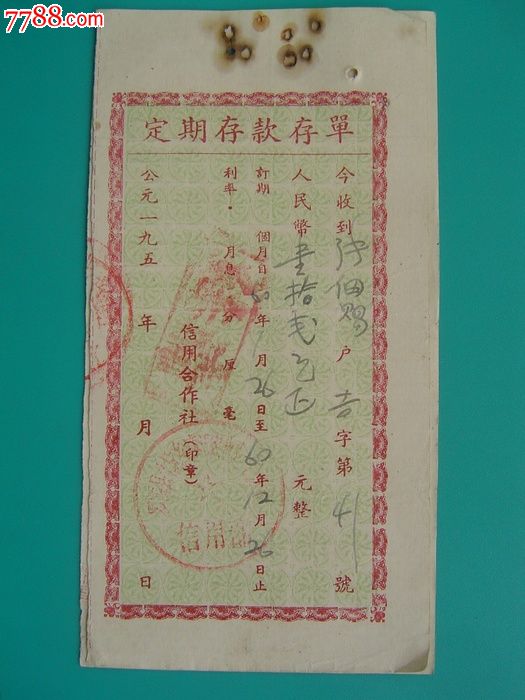 7788.com
定期存款存單
今收到 户 吉字第41號
人民幣壹拾弍元正元整
訂期 個月自60年 月26日至60年12月26日止
利率 月息 分厘毫
信用合作社(印章)
公元一九五 年 月 日
信用